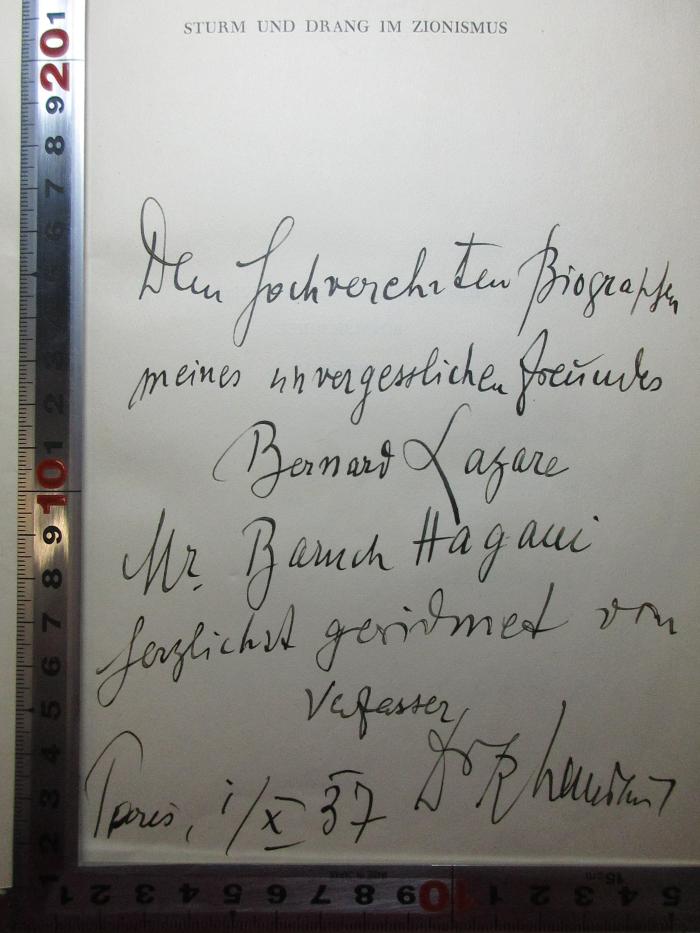 STURM UND DRANG IM ZIONISMUS
Dem hochverehrten Biographen
meines unvergesslichen Freundes
Bernard Lazare
Mr. Baruch Hagani
herzlichst gewidmet von
Verfasser
Dr R
Paris, 1/X 37